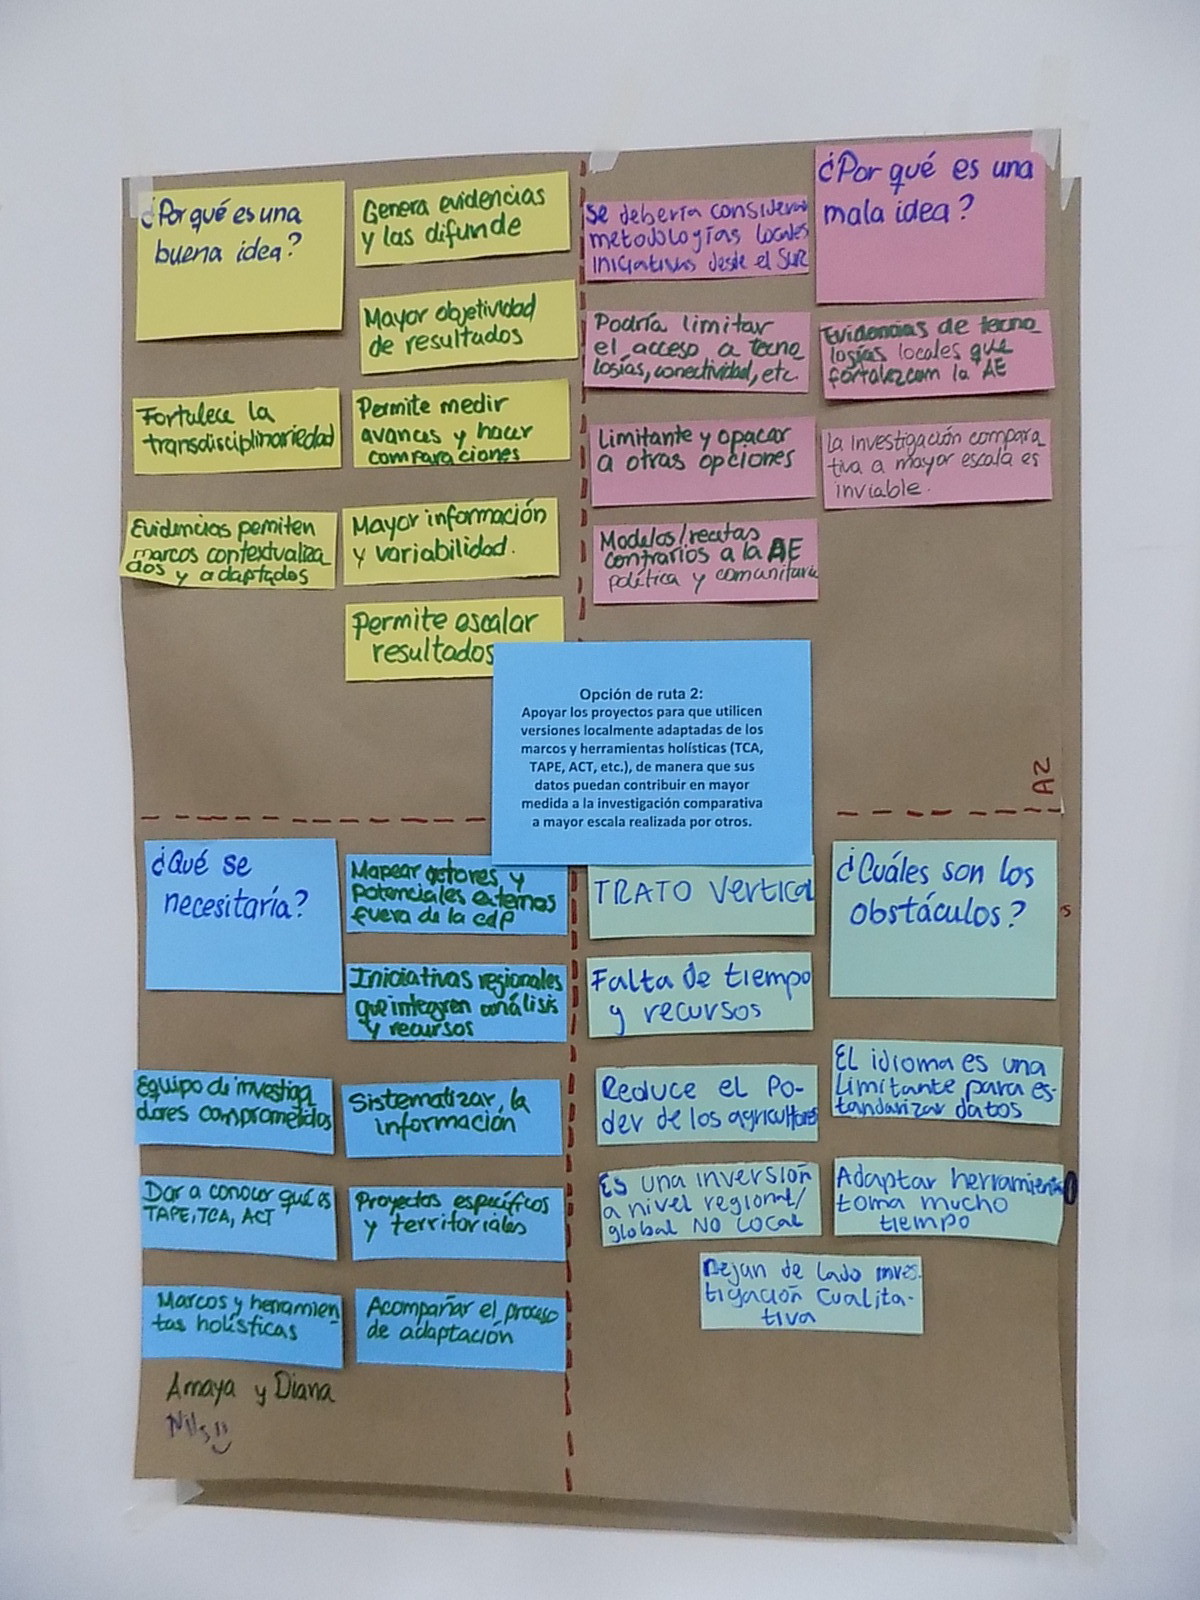 ¿Por qué es una
buena idea?
Genera evidencias
y las difunde
Mayor objetividad
de resultados
Fortalece la
transdisciplinariedad
Permite medir
avances y hacer
comparaciones
Evidencias pemiten
marcos contextualiza
dos y adaptados
Mayor información
y variabilidad.
Permite escalar
resultados
¿Por qué es una
mala idea?
Se debería considerar
metodologías locales
iniciativas desde el SUR
Podría limitar
el acceso a tecno
logías, conectividad, etc.
Evidencias de tecno
logías locales que
fortalezcan la AE
Limitante y opacar
a otras opciones
la investigación compara
tiva a mayor escala es
inviable.
Modelos/recetas
contrarios a la AE
política y comunitaria
Opción de ruta 2:
Apoyar los proyectos para que utilicen
versiones localmente adaptadas de los
marcos y herramientas holísticas (TCA,
TAPE, ACT, etc.), de manera que sus
datos puedan contribuir en mayor
medida a la investigación comparativa
a mayor escala realizada por otros.
A2
¿Qué se
necesitaría?
Mapear actores y
potenciales externos
fuera de la cdp
Iniciativas regionales
que integren análisis
y recursos
Equipo de investiga
dores comprometidos
Sistematizar la
información
Dar a conocer qué es
TAPE, TCA, ACT
Proyectos específicos
y territoriales
Marcos y herramien
tas holísticas
Acompañar el proceso
de adaptación
Amaya y Diana
Nils
¿Cuáles son los
obstáculos?
TRATO vertical
Falta de tiempo
y recursos
El idioma es una
limitante para es-
tandarizar datos
Reduce el Po-
der de los agricultores
Es una inversión
a nivel regional/
global NO LOCAL
Adaptar herramientas
toma mucho
tiempo
Dejan de lado inves-
tigación cualita-
tiva